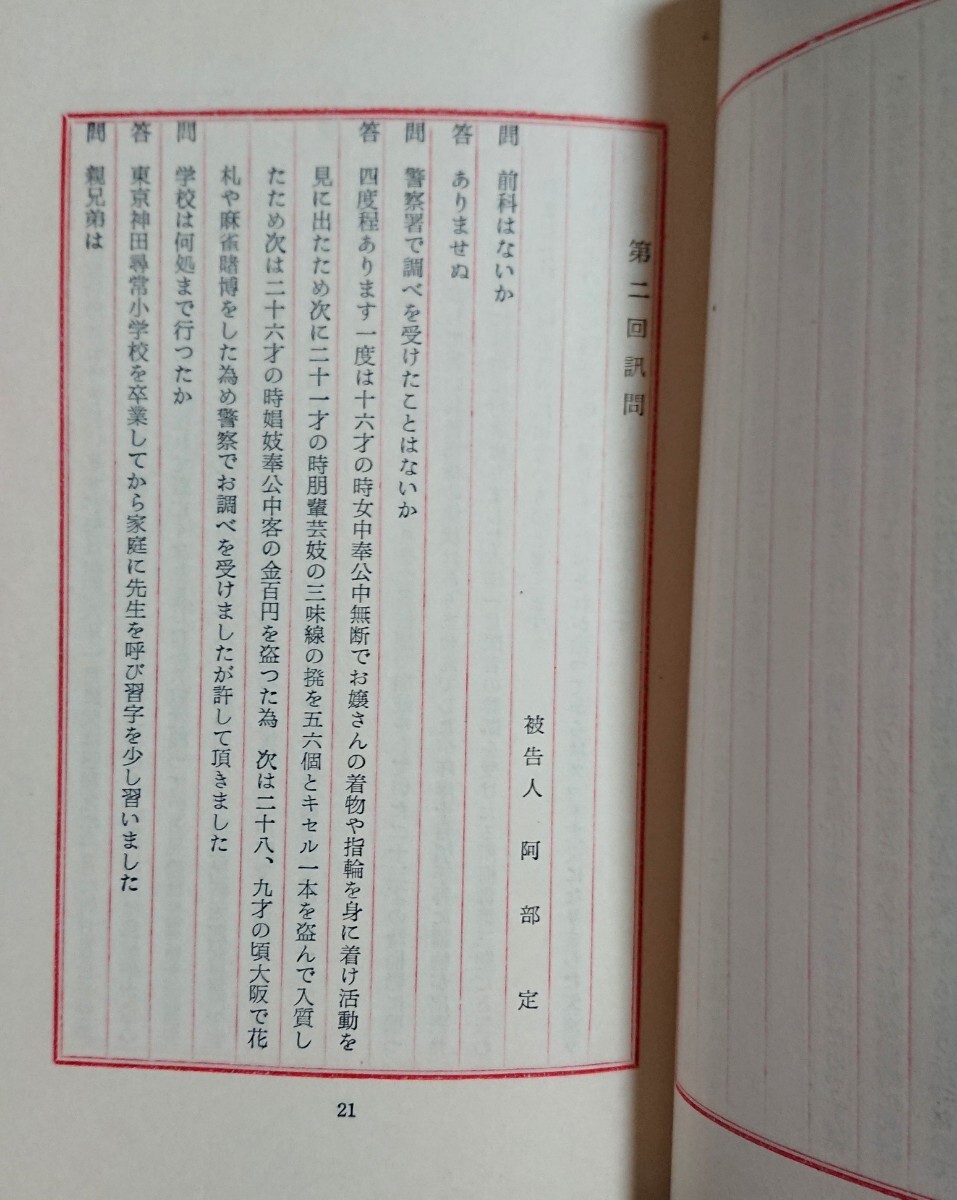 第二回訊問
被告人 阿部定
問 前科はないか
答 ありませぬ
問 警察署で調べを受けたことはないか
答 四度程あります一度は十六才の時女中奉公中無断でお嬢さんの着物や指輪を身に着け活動を
見に出たため次に二十一才の時朋輩芸妓の三味線の撥を五六個とキセル一本を盗んで入質し
たため次は二十六才の時娼妓奉公中客の金百円を盗つた為 次は二十八、九才の頃大阪で花
札や麻雀賭博をした為め警察でお調べを受けましたが許して頂きました
問 学校は何処まで行つたか
答 東京神田尋常小学校を卒業してから家庭に先生を呼び習字を少し習いました
問 親兄弟は
21